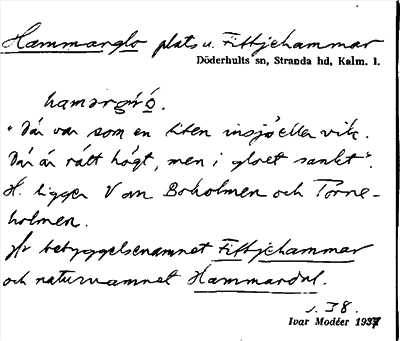 Hammarglo plats u. Fittjehammar
Döderhults sn, Stranda hd, Kalm. l.
"Där var som en liten insjö eller vik.
Där är rätt högt, men i gloet sankt".
H. ligger V om Boholmen och Törne-
holmen.
Jfr bebyggelsenamnet Fittjehammar
och naturnamnet Hammardal.
s. 38.
Ivar Modéer 1937